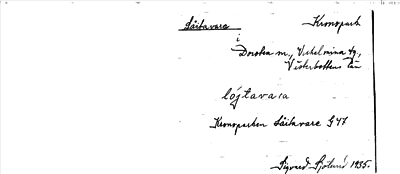 Såitavare Kronopark
i
Dorotea m., Vilhelmina tg.,
Västerbottens län
lójtavara
Kronoparken Såitavare G 47
Sigvard Sjölund 1935.